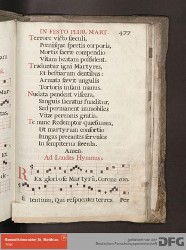 IN FESTO PLUR. MART. 477
Terrore victo sæculi,
Pœnisque spretis corporis,
Mortis sacræ compendio
Vitam beatam possident.
Traduntur igni Martyres,
Et bestiarum dentibus:
Armata sævit ungulis
Tortoris insani manus.
Nudata pendent viscera,
Sanguis sacratus funditur,
Sed permanent immobiles
Vitæ perennis gratia.
Te nunc Redemptor quæsumus,
Ut martyrum consortio
Jungas precantes servulos
In sempiterna sæcula.
Amen.
Ad Laudes Hymnus.
Rex gloriose Martyrum, Corona con-
fitentium, Qui respuentes terrea Per